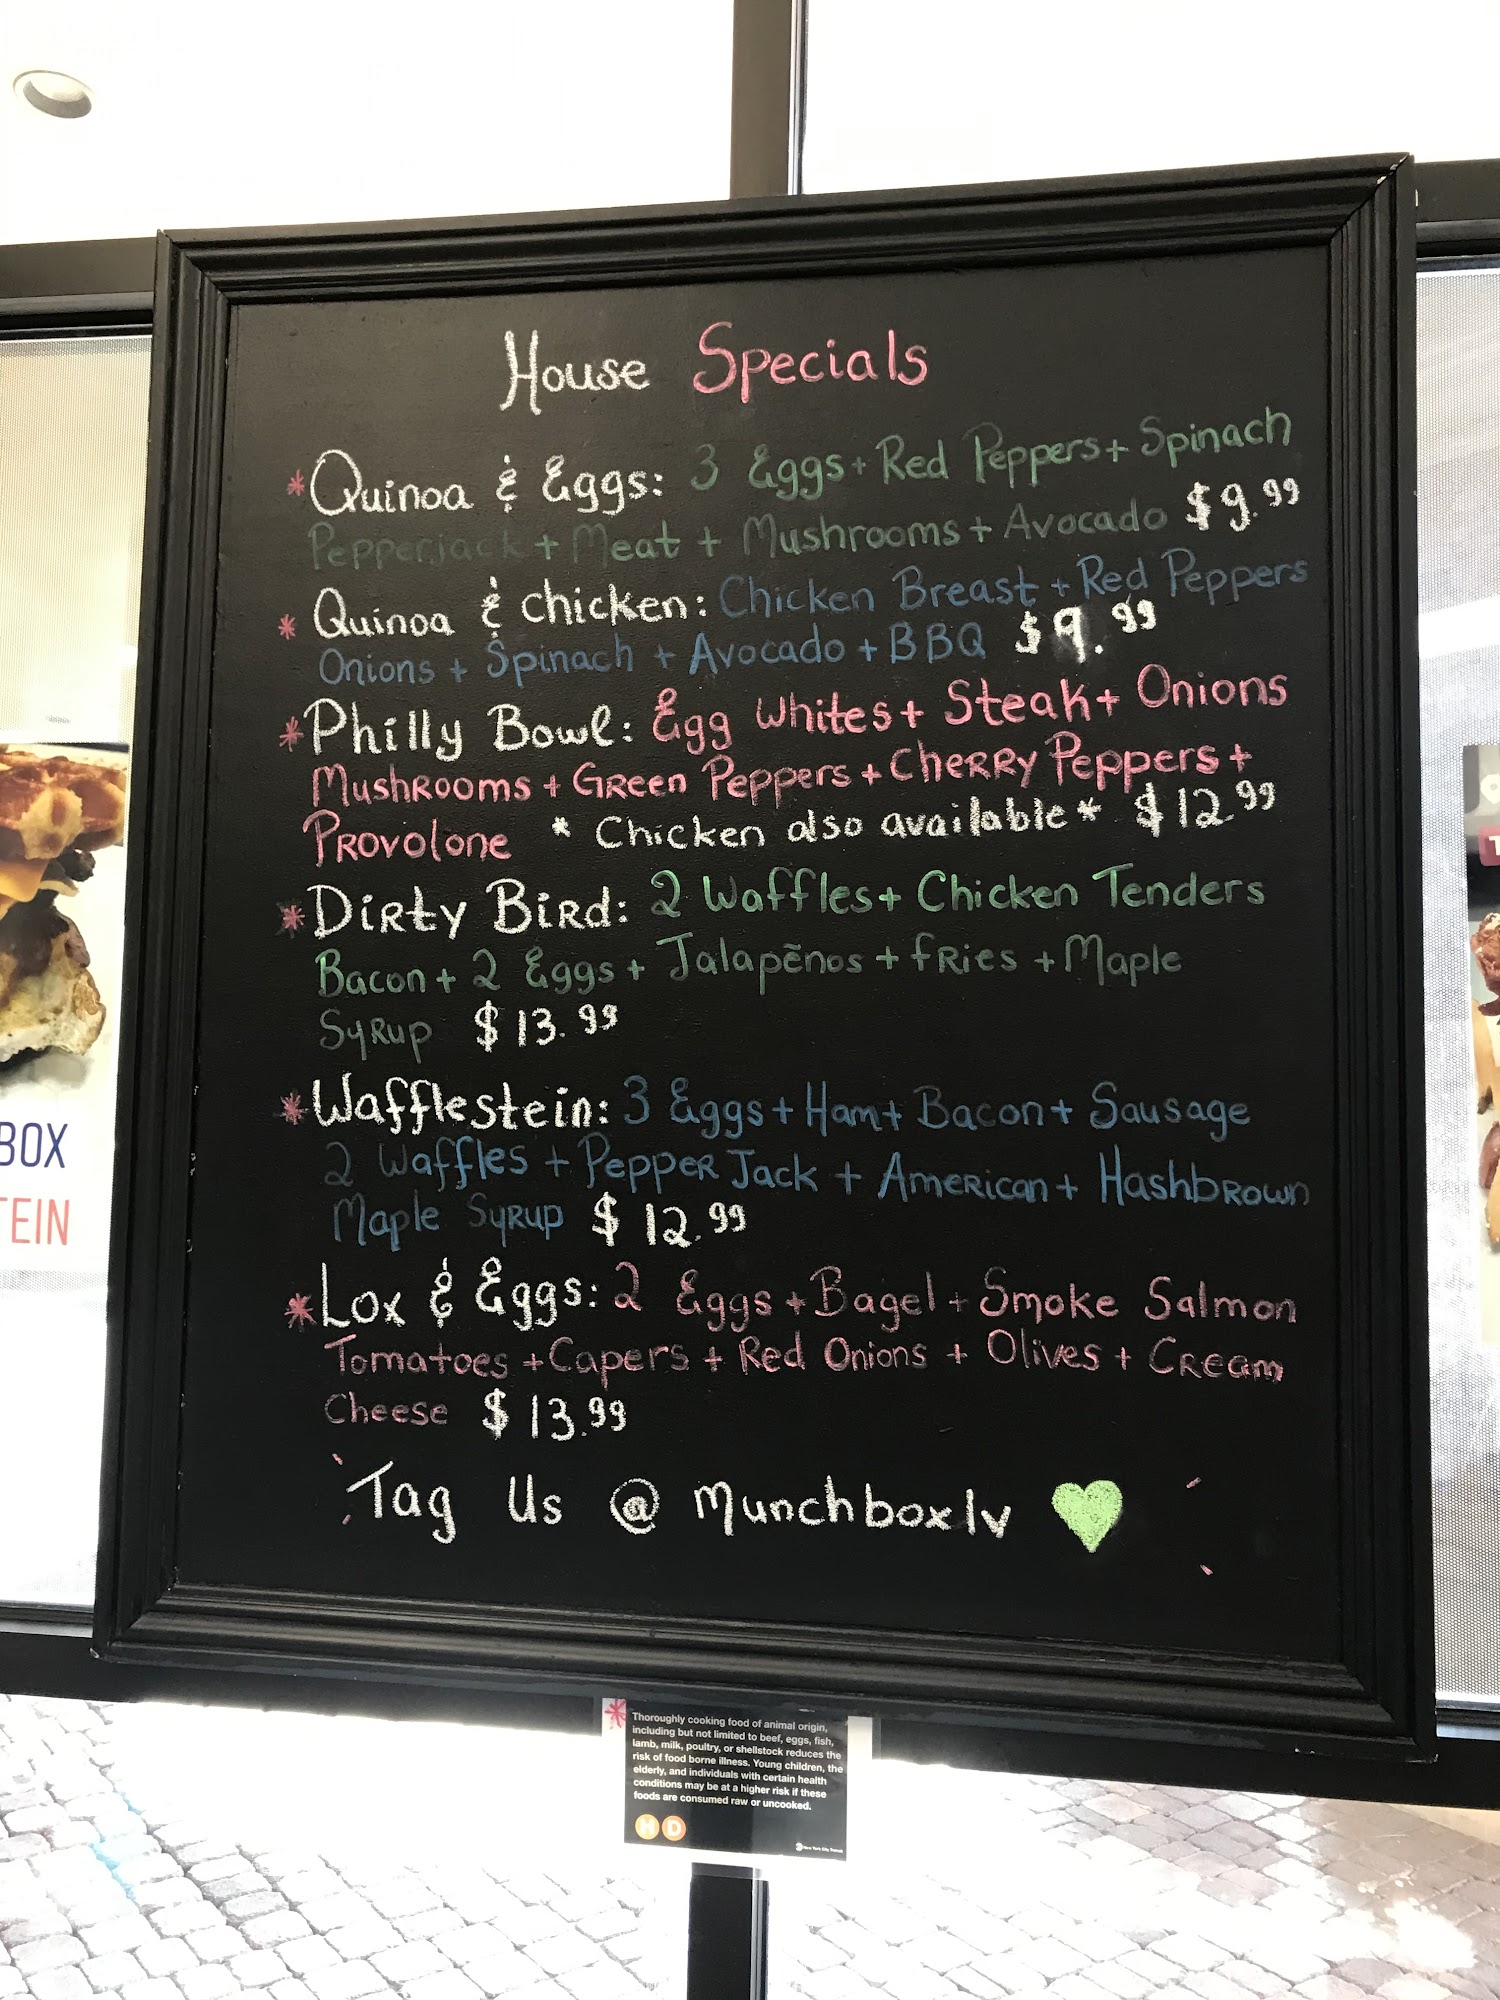 House Specials
*Quinoa & Eggs: 3 Eggs + Red Peppers + Spinach
Pepperjack + Meat + Mushrooms + Avocado $9.99
* Quinoa & Chicken: Chicken Breast + Red Peppers
Onions + Spinach + Avocado + BBQ $9.99
*Philly Bowl: Egg Whites + Steak + Onions
Mushrooms + Green Peppers + Cherry Peppers +
Provolone * Chicken also available* $12.99
*Dirty Bird: 2 Waffles + Chicken Tenders
Bacon + 2 Eggs + Jalapēnos + fries + Maple
Syrup $13.99
*Wafflestein: 3 Eggs + Ham + Bacon + Sausage
2 Waffles + Pepper Jack + American + Hashbrown
Maple Syrup $12.99
*Lox & Eggs: 2 Eggs + Bagel + Smoke Salmon
Tomatoes + Capers + Red Onions + Olives + Cream
Cheese $13.99
Tag Us @ munchboxlv
BOX
TEIN
Thoroughly cooking food of animal origin,
including but not limited to beef, eggs, fish,
lamb, milk, poultry, or shellstock reduces the
risk of food borne illness. Young children, the
elderly, and individuals with certain health
conditions may be at a higher risk if these
foods are consumed raw or uncooked.
H D
New York City Transit